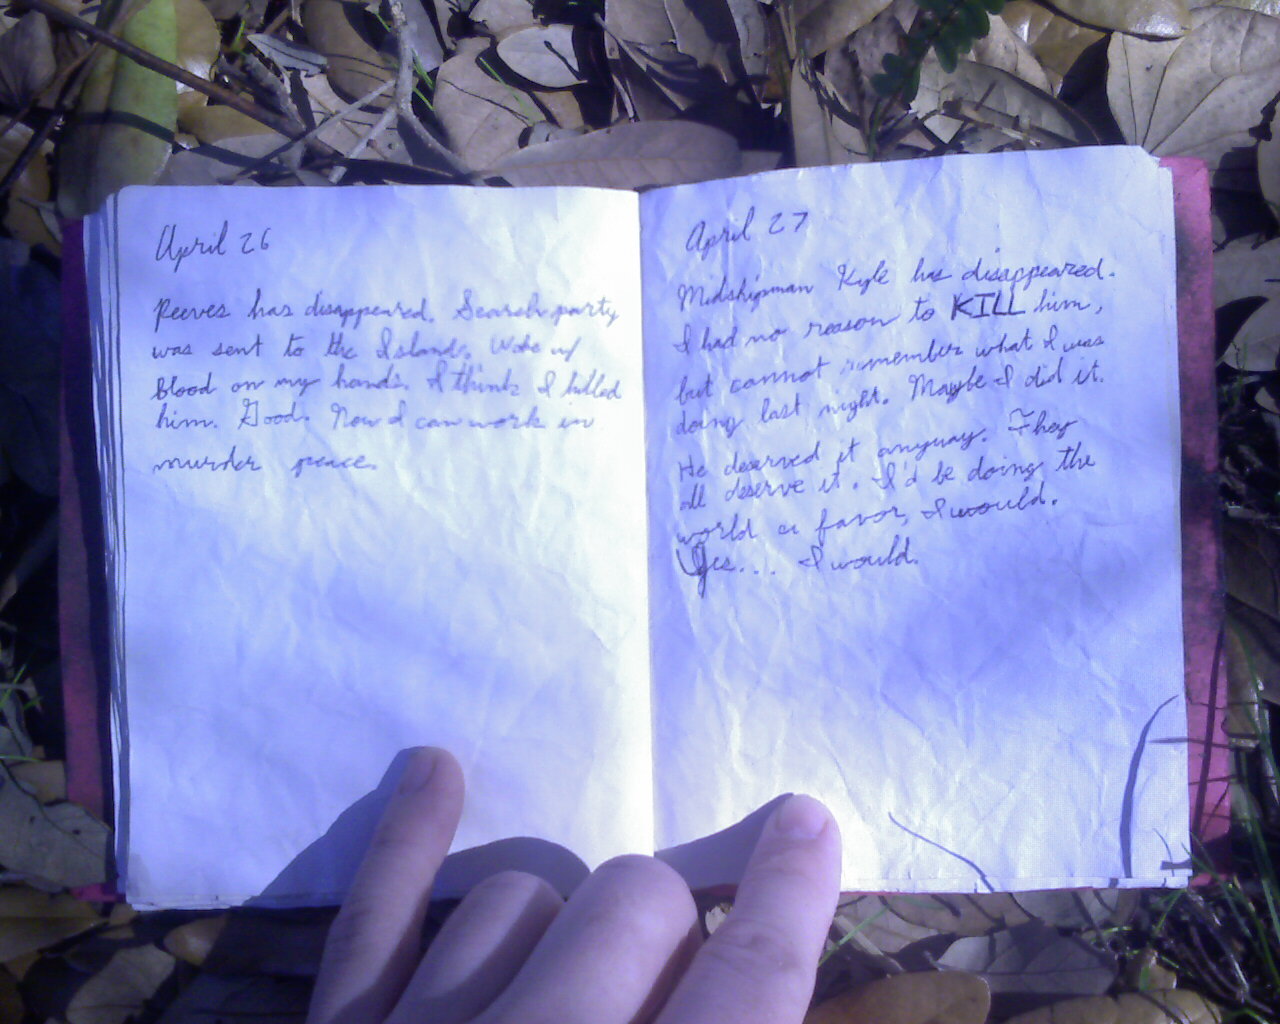 April 26
Reeves has disappeared. Search party
was sent to the Island. Woke w/
blood on my hands. I think I killed
him. Good. Now I can work in
murder peace.
April 27
Midshipman Kyle has disappeared.
I had no reason to KILL him,
but cannot remember what I was
doing last night. Maybe I did it.
He deserved it anyway. They
all deserve it. I'd be doing the
world a favor, I would.
Yes... I would.